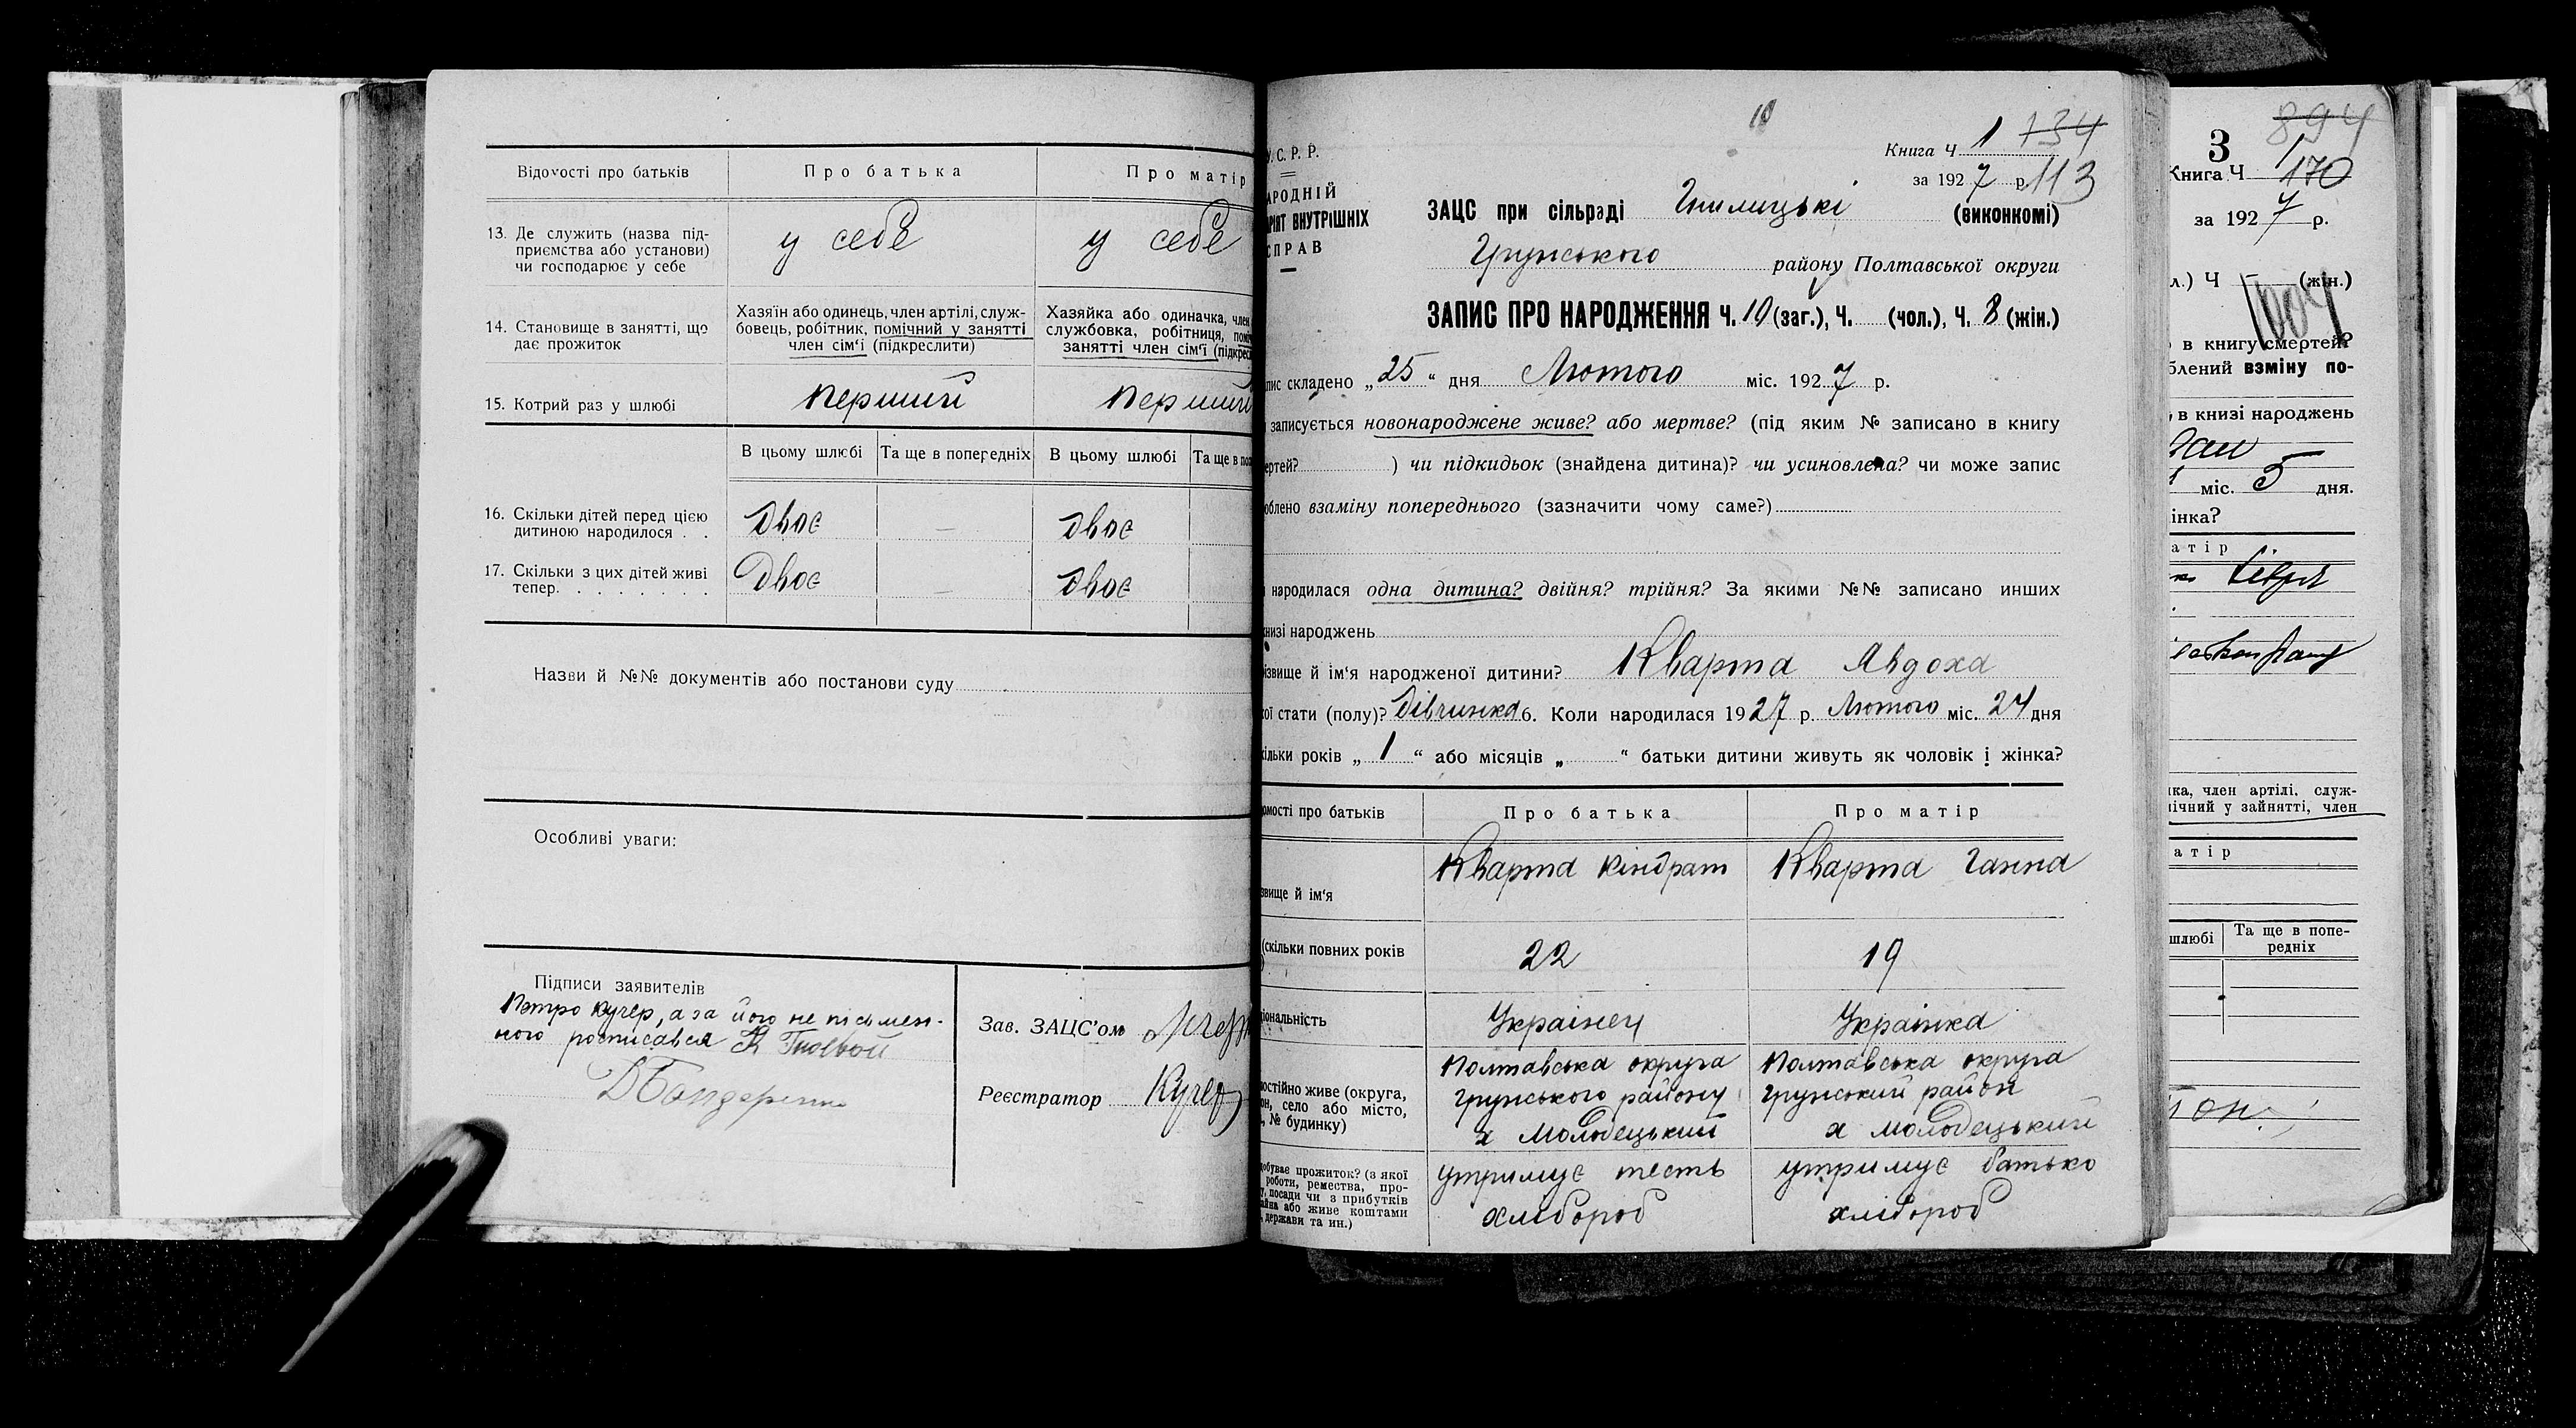 Відомості про батьків
Про батька
Про матір
13. Де служить (назва під-
приємства або установи)
чи господарює у себе
у себе
у себе
14. Становище в занятті, що
дає прожиток
Хазяїн або одинець, член артілі, служ-
бовець, робітник, помічний у занятті
член сім'ї (підкреслити)
Хазяйка або одиначка, член
службовка, робітниця,
занятті член сім'ї
15. Котрий раз у шлюбі
перший
перший
В цьому шлюбі
Та ще в попередніх
В цьому шлюбі
Та ще в
16. Скільки дітей перед цією
дитиною народилося . .
двоє
—
двоє
17. Скільки з цих дітей живі
тепер. . . . . . . .
Двоє
—
двоє
Назви й №№ документів або постанови суду
Особливі уваги:
Підписи заявителів
Петро Кучер, а за його не письмен-
ного росписався
Зав. ЗАЦС'ом
Реєстратор Кучер
10
У.С.Р.Р.
АРОДНІЙ
РІЯТ ВНУТРІШНІХ
СПРАВ
Книга Ч 1 734
за 1927 р. 113
ЗАЦС при сільраді Гнилицькі (виконкомі)
Грунського району Полтавської округи
ЗАПИС ПРО НАРОДЖЕННЯ Ч. 10 (заг.), Ч. (чол.), Ч. 8 (жін.)
пис складено „25“ дня Лютого міс. 1927 р.
записується новонароджене живе? або мертве? (під яким № записано в книгу
ертей? ) чи підкидьок (знайдена дитина)? чи усиновлена? чи може запис
облено взаміну попереднього (зазначити чому саме?)
народилася одна дитина? двійня? трійня? За якими №№ записано инших
книзі народжень
ізвище й ім'я народженої дитини? Кварта Явдоха
кої стати (полу)? Дівчинка 6. Коли народилася 1927 р. Лютого міс. 24 дня
кільки років „1“ або місяців „ “ батьки дитини живуть як чоловік і жінка?
омості про батьків
Про батька
Про матір
звище й ім'я
Кварта Кіндрат
Кварта Ганна
(скільки повних років
22
19
іональність
Українец
Українка
остійно живе (округа,
он, село або місто,
, № будинку)
Полтавська округа
Грунського району
х Молодецький
Полтавська округа
Грунський район
х Молодецький
добуває прожиток? (з якої
роботи, ремества, про-
у, посади чи з прибутків
айна або живе коштами
, держави та ин.)
утримує тесть
хлібороб
утримує батько
хлібороб
3
894
Книга Ч 1
170
за 1927 р.
л.) Ч (жін.)
в книгу смертей?
блений взміну по-
, в книзі народжень
міс. 5 дня.
інка?
атір
ка, член артілі, служ-
ічний у зайнятті, член
атір
шлюбі
Та ще в попе-
редніх